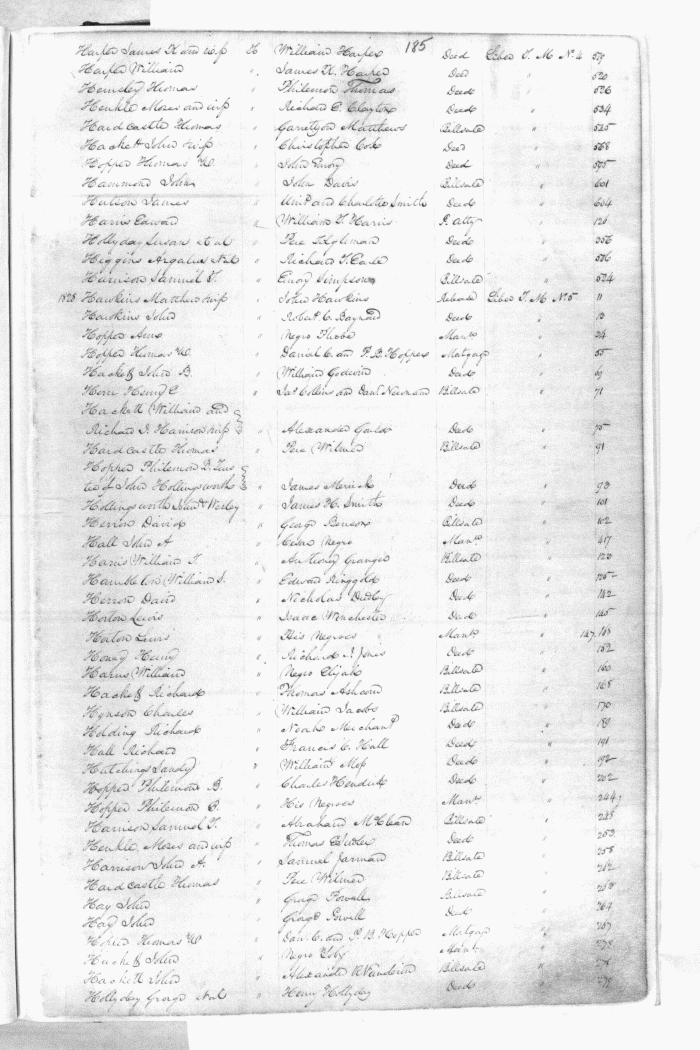 185
Harper James K and wife to William Harper Deed Liber T. M No 4 519
Harper William " James K. Harper Deed " 520
Hemsley Thomas " Philemon Thomas Deed " 526
Henkle Moses and wife " Richard C. Clayton Deed " 534
Hardcastle Thomas " Garretson Matthews Billsale " 525
Hackett John wife " Christopher Cox Deed " 568
Hopper Thomas W " John Emory Deed " 595
Hammond John " John Davis Billsale " 601
Hutson James " and Charlotte Smith Deed " 604
Harris Edward " William T. Harris P. Atty " 126
Hollyday Susan et al " Pere Tilghman Deed " 556
Higgins Argalus et al " Richard T. Earle Deed " 576
Harrison Samuel T. " Emory Simpson Billsale " 574
1828 Hawkins Matthew wife " John Hawkins Release Liber T. M No 5 11
Hawkins John " Robert C. Baynard Deed " 13
Hopper Ann " Negro Phebe Mann " 24
Hopper Thomas W. " Daniel C. and P. B. Hopper Mortgage " 55
Hackett John B. " William Godwin Deed " 69
Henry C " Jas Collins and Danl Newnam Billsale " 71
Hackett William and
Richard I. Harrison wife " Alexander Deed " 75
Hardcastle Thomas " Pere Wilmer Billsale " 91
Hopper Philemon B. Trus
tee of John Hollingsworth " James Merrick Deed " 93
Hollingsworth John & Wesley " James H. Smith Deed " 101
Herron David " George Benson Billsale " 102
Hall John A " Negro Mann " 417
Harris William T. " Anthony Granger Billsale " 120
Hambleton William S. " Edward Ringgold Deed " 125
Herron David " Nicholas Deed " 142
Horton Lewis " Isaac Winchester Deed " 145
Horton Lewis " His Negroes Mann "
Honey Henry " Richard I. Jones Deed " 152
Harris William " Negro Elijah Billsale " 160
Hackett Richard " Thomas Ashcom Billsale " 168
Hynson Charles " William Jacobs Billsale " 170
Holding Richard " Noah Merchant Deed " 189
Hall Richard " Francis C. Hall Deed " 191
Hutchings Sandy " William Deed " 192
Hopper Philemon B. " Charles Hendrix Deed " 202
Hopper Philemon B. " His Negroes Mann " 244
Harrison Samuel T. " Abraham McClean Billsale " 245
Henkle Moses and wife " Thomas Butler Deed " 253
Harrison John A. " Samuel Jarman Billsale " 258
Hardcastle Thomas " Pere Wilmer Billsale " 262
Hay John " George Powell Billsale " 263
Hay John " George Powell Deed " 264
Hopper Thomas W " Danl C. and P. B. Hopper Mortgage " 267
Hackett John " Negro Toby Mann "
Hackett John " Alexander Billsale "
Hollyday George et al " Henry Hollyday Deed "